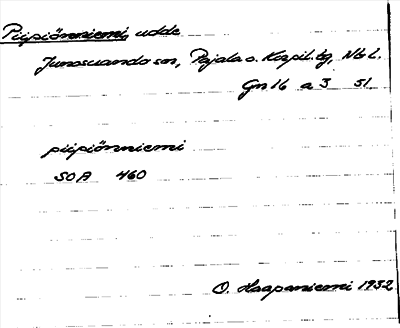 Piipiönniemi, udde
Junosuando sn, Pajala o. Korpil. tg, Nb l.
Gn 16 a 3 51
piipiönniemi
SOA 460
O. Haapaniemi 1932